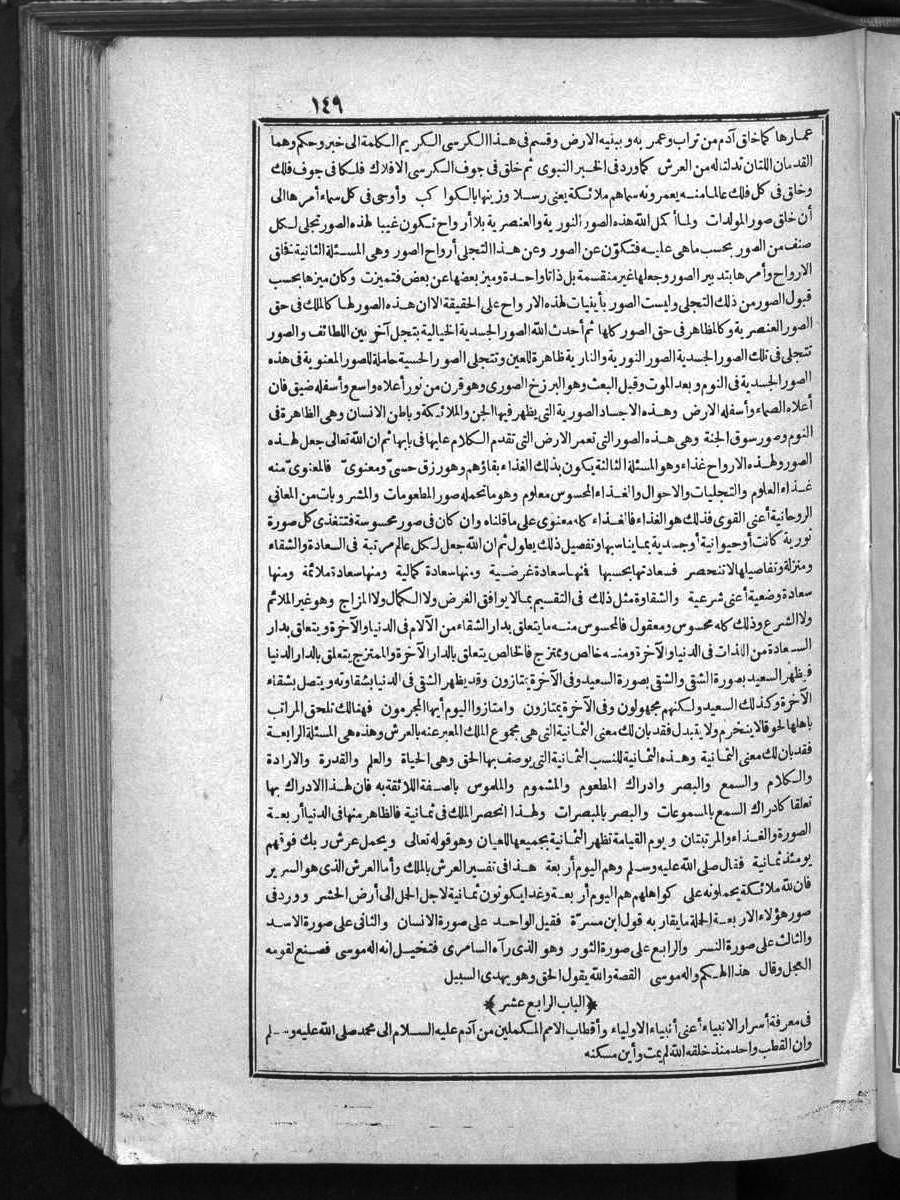 ١٤٩
عمارها كما خلق آدم من تراب وعمر به وببنيه الارض وقسم فى هذا الكرسى الكريم الكلمة الى خبر وحكم وهما
القدمان اللتان تدلتا له من العرش كما ورد فى الخبر النبوى ثم خلق فى جوف الكرسى الافلاك فلكا فى جوف فلك
وخلق فى كل فلك عالما منه يعمرونه سماهم ملائكة يعنى رسلا وزينها بالكواكب وأوحى فى كل سماء أمرها الى
أن خلق صور المولدات ولما أكمل الله هذه الصور النورية والعنصرية بلا أرواح تكون غيبا لهذه الصور تجلى لكل
صنف من الصور بحسب ماهى عليه فتكوّن عن الصور وعن هذا التجلى أرواح الصور وهى المسئلة الثانية فخلق
الارواح وأمرها بتدبير الصور وجعلها غير منقسمة بل ذاتا واحدة وميز بعضها عن بعض فتميزت وكان ميزها بحسب
قبول الصور من ذلك التجلى وليست الصور بأينيات لهذه الارواح على الحقيقة الا ان هذه الصور لها كالملك فى حق
الصور العنصرية وكالمظاهر فى حق الصور كلها ثم أحدث الله الصور الجسدية الخيالية بتجل آخر بين اللطائف والصور
تتجلى فى تلك الصور الجسدية الصور النورية والنارية ظاهرة للعين وتتجلى الصور الحسية حاملة للصور المعنوية فى هذه
الصور الجسدية فى النوم وبعد الموت وقبل البعث وهو البرزخ الصورى وهو قرن من نور أعلاه واسع وأسفله ضيق فان
أعلاه العماء وأسفله الارض وهذه الاجساد الصورية التى يظهر فيها الجن والملائكة وباطن الانسان وهى الظاهرة فى
النوم وصور سوق الجنة وهى هذه الصور التى تعمر الارض التى تقدم الكلام عليها فى بابها ثم ان الله تعالى جعل لهذه
الصور ولهذه الارواح غذاء وهو المسئلة الثالثة يكون بذلك الغذاء بقاؤهم وهو رزق حسىّ ومعنوىّ فالمعنوىّ منه
غذاء العلوم والتجليات والاحوال والغذاء المحسوس معلوم وهو ما تحمله صور المطعومات والمشروبات من المعانى
الروحانية أعنى القوى فذلك هو الغذاء فالغذاء كله معنوى على ما قلناه وان كان فى صور محسوسة فتتغذى كل صورة
نورية كانت أو حيوانية أو جسدية بما يناسبها وتفصيل ذلك يطول ثم ان الله جعل لكل عالم مرتبة فى السعادة والشقاء
ومنزلة وتفاصيلها لاتنحصر فسعادتها بحسبها فنها سعادة غرضية ومنها سعادة كمالية ومنها سعادة ملائمة ومنها
سعادة وضعية أعنى شرعية والشقاوة مثل ذلك فى التقسيم بما لا يوافق الغرض ولا الكمال ولا المزاج وهو غير الملائم
ولا الشرع وذلك كله محسوس ومعقول فالمحسوس منه ما يتعلق بدار الشقاء من الآلام فى الدنيا والآخرة ويتعلق بدار
السعادة من اللذات فى الدنيا والآخرة ومنه خالص وممتزج فالخالص يتعلق بالدار الآخرة والممتزج يتعلق بالدار الدنيا
فيظهر السعيد بصورة الشقى والشقى بصورة السعيد وفى الآخرة يمتازون وقد يظهر الشقى فى الدنيا بشقاوته ويتصل بشقاء
الآخرة وكذلك السعيد ولكنهم مجهولون وفى الآخرة يمتازون وامتازوا اليوم أيها المجرمون فهنالك تلحق المراتب
باهلها لحوقا لا ينخرم ولا يتبدل فقد بان لك معنى الثمانية التى هى مجموع الملك المعبر عنه بالعرش وهذه هى المسئلة الرابعة
فقد بان لك معنى الثمانية وهذه الثمانية للنسب الثمانية التى يوصف بها الحق وهى الحياة والعلم والقدرة والارادة
والكلام والسمع والبصر وادراك المطعوم والمشموم والملموس بالصفة اللائقة به فان لهذا الادراك بها
تعلقا كادراك السمع بالمسموعات والبصر بالمبصرات ولهذا انحصر الملك فى ثمانية فالظاهر منها فى الدنيا أربعة
الصورة والغذاء والمرتبتان ويوم القيامة تظهر الثمانية بجميعها للعيان وهو قوله تعالى ويحمل عرش ربك فوقهم
يومئذ ثمانية فقال صلى الله عليه وسلم وهم اليوم أربعة هذا فى تفسير العرش بالملك وأما العرش الذى هو السرير
فان لله ملائكة يحملونه على كواهلهم هم اليوم أربعة وغدا يكونون ثمانية لاجل الحمل الى أرض الحشر وورد فى
صور هؤلاء الاربعة الحملة ما يقاربه قول ابن مسرّة فقيل الواحد على صورة الانسان والثانى على صورة الاسد
والثالث على صورة النسر والرابع على صورة الثور وهو الذى رآه السامرى فتخيل انه اله موسى فصنع لقومه
العجل وقال هذا الهكم واله موسى القصة والله يقول الحق وهو يهدى السبيل
﴿الباب الرابع عشر﴾
فى معرفة أسرار الانبياء أعنى أنبياء الاولياء وأقطاب الامم المكملين من آدم عليه السلام الى محمد صلى الله عليه وسلم
وان القطب واحد منذ خلقه الله لم يمت وأين مسكنه